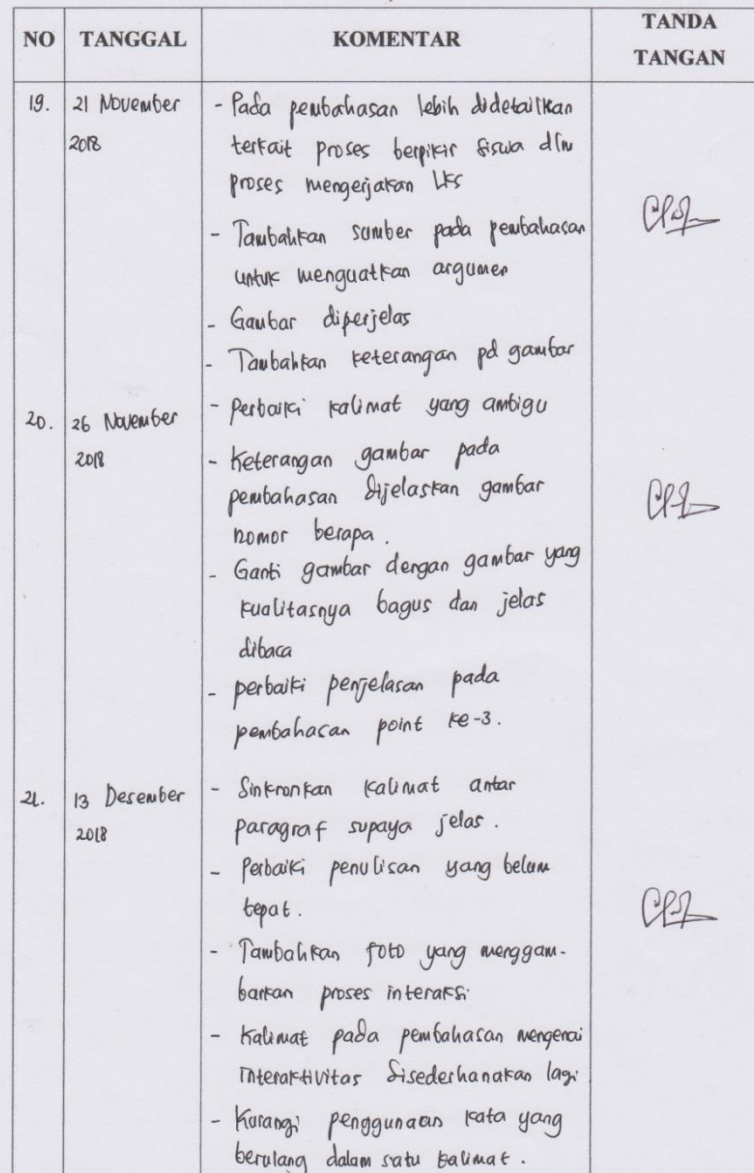 NO TANGGAL KOMENTAR TANDA TANGAN
19. 21 November 2018
- Pada pembahasan lebih didetailkan
terkait proses berpikir siswa dlm
proses mengerjakan LKS
- Tambahkan sumber pada pembahasan
untuk menguatkan argumen
- Gambar diperjelas
- Tambahkan keterangan pd gambar
20. 26 November 2018
- Perbaiki kalimat yang ambigu
- Keterangan gambar pada
pembahasan dijelaskan gambar
nomor berapa.
- Ganti gambar dengan gambar yang
kualitasnya bagus dan jelas
dibaca
- perbaiki penjelasan pada
pembahasan point ke-3.
21. 13 Desember 2018
- Sinkronkan kalimat antar
paragraf supaya jelas.
- Perbaiki penulisan yang belum
tepat.
- Tambahkan foto yang menggam-
barkan proses interaksi
- Kalimat pada pembahasan mengenai
interaktivitas disederhanakan lagi
- Kurangi penggunaan kata yang
berulang dalam satu kalimat.